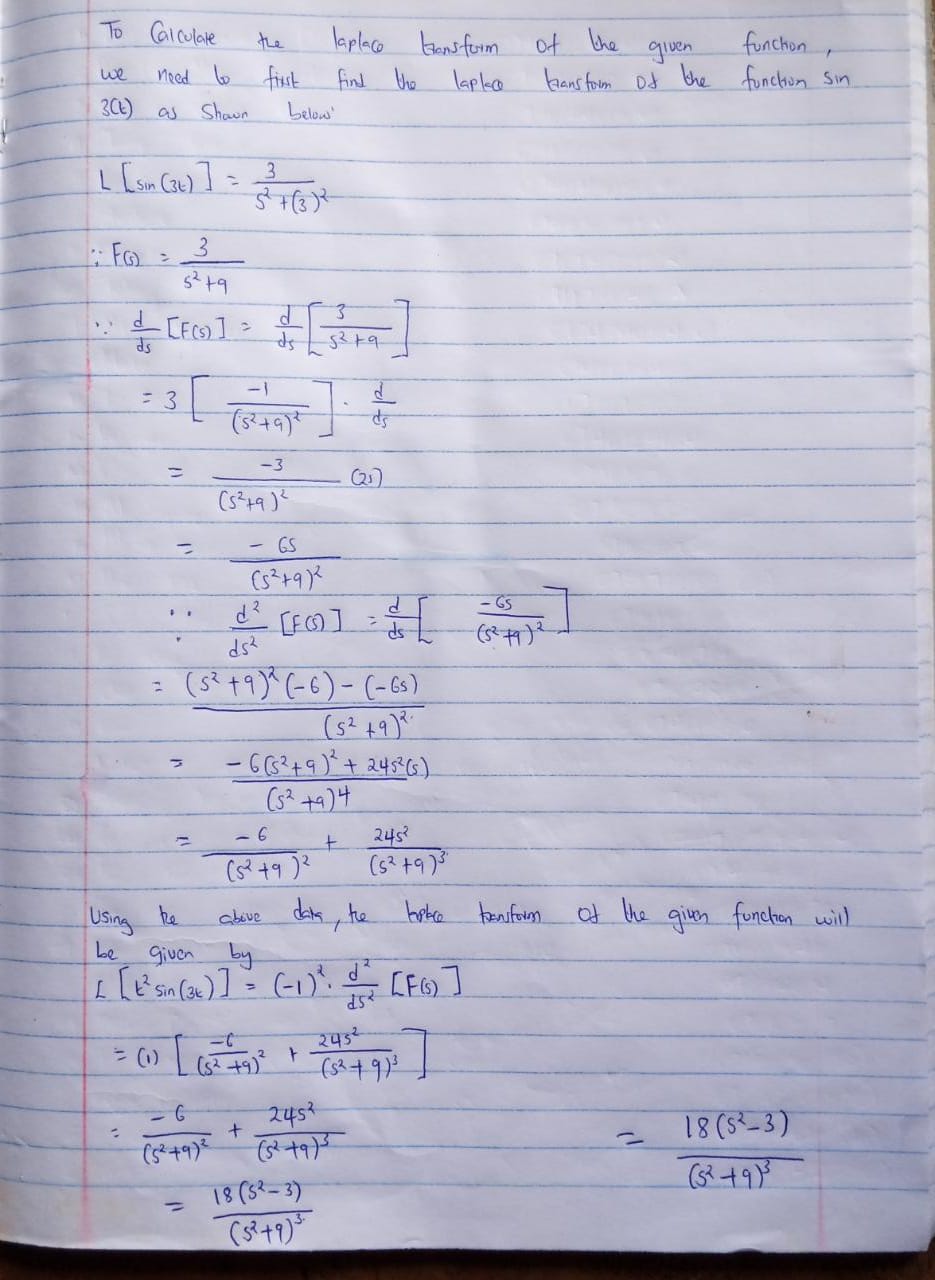 To Calculate the laplace transform of the given function,
we need to first find the laplace transform of the function sin
3(t) as Shown below'
L [sin (3t)] = 3/(s² + (3)²)
∵ F(s) = 3/(s² + 9)
∵ d/ds [F(s)] = d/ds [3/(s² + 9)]
= 3 [-1/(s² + 9)²] · d/ds
= -3/(s² + 9)² (2s)
= -6s/(s² + 9)²
∵ d²/ds² [F(s)] = d/ds [-6s/(s² + 9)²]
= ((s² + 9)² (-6) - (-6s))/(s² + 9)²
= (-6(s² + 9)² + 24s²(s))/(s² + 9)4
= -6/(s² + 9)² + 24s²/(s² + 9)³
Using the above data, the laplace transform of the given function will
be given by
L [t² sin(3t)] = (-1)² · d²/ds² [F(s)]
= (1) [-6/(s² + 9)² + 24s²/(s² + 9)³]
= -6/(s² + 9)² + 24s²/(s² + 9)³
= 18(s² - 3)/(s² + 9)³
= 18(s² - 3)/(s² + 9)³